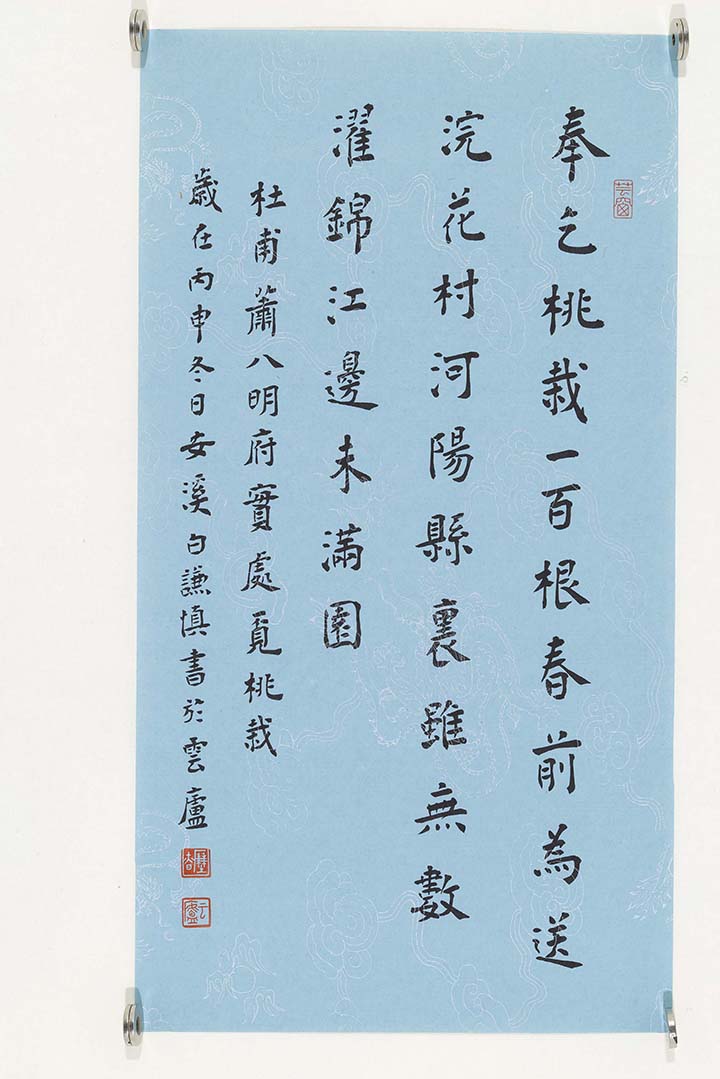 奉乞桃栽一百根春前為送
浣花村河陽縣裏雖無數
濯錦江邊未滿園
杜甫蕭八明府實處覓桃栽
歲在丙申冬日安溪白謙慎書於雲廬